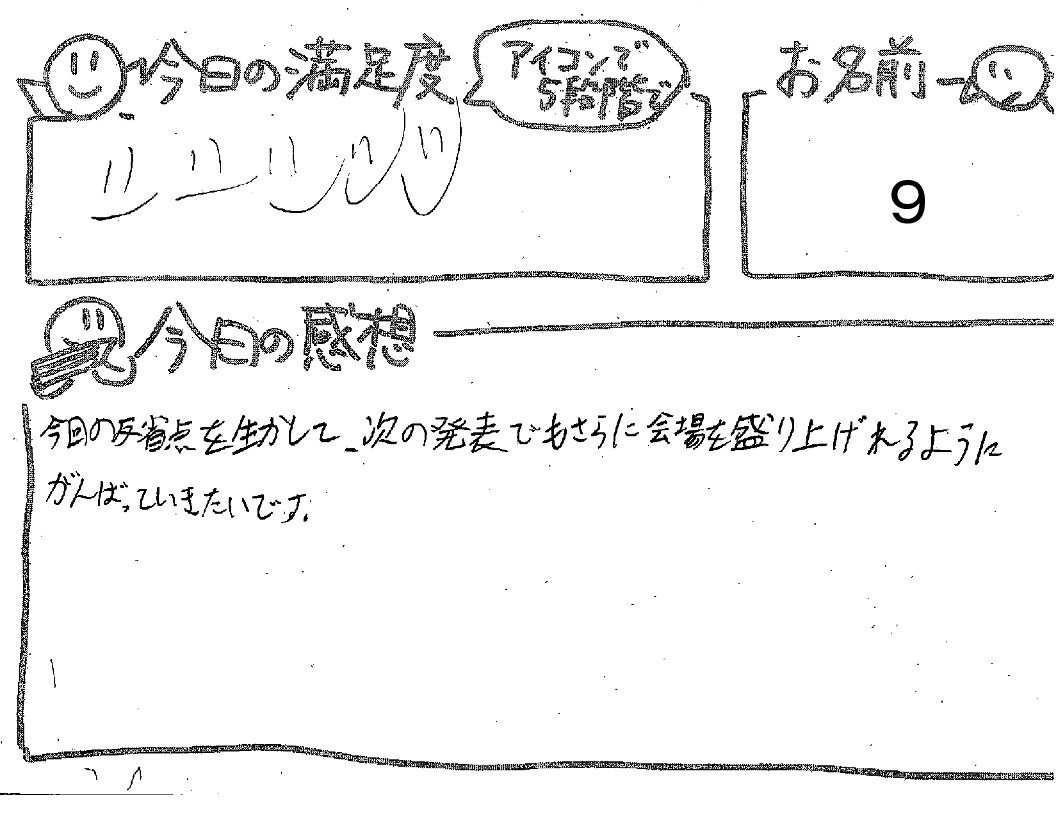 今日の満足度
アイコンで
5段階で
お名前
9
今日の感想
今回の反省点を生かして、次の発表でもさらに会場を盛り上げれるように
がんばっていきたいです。